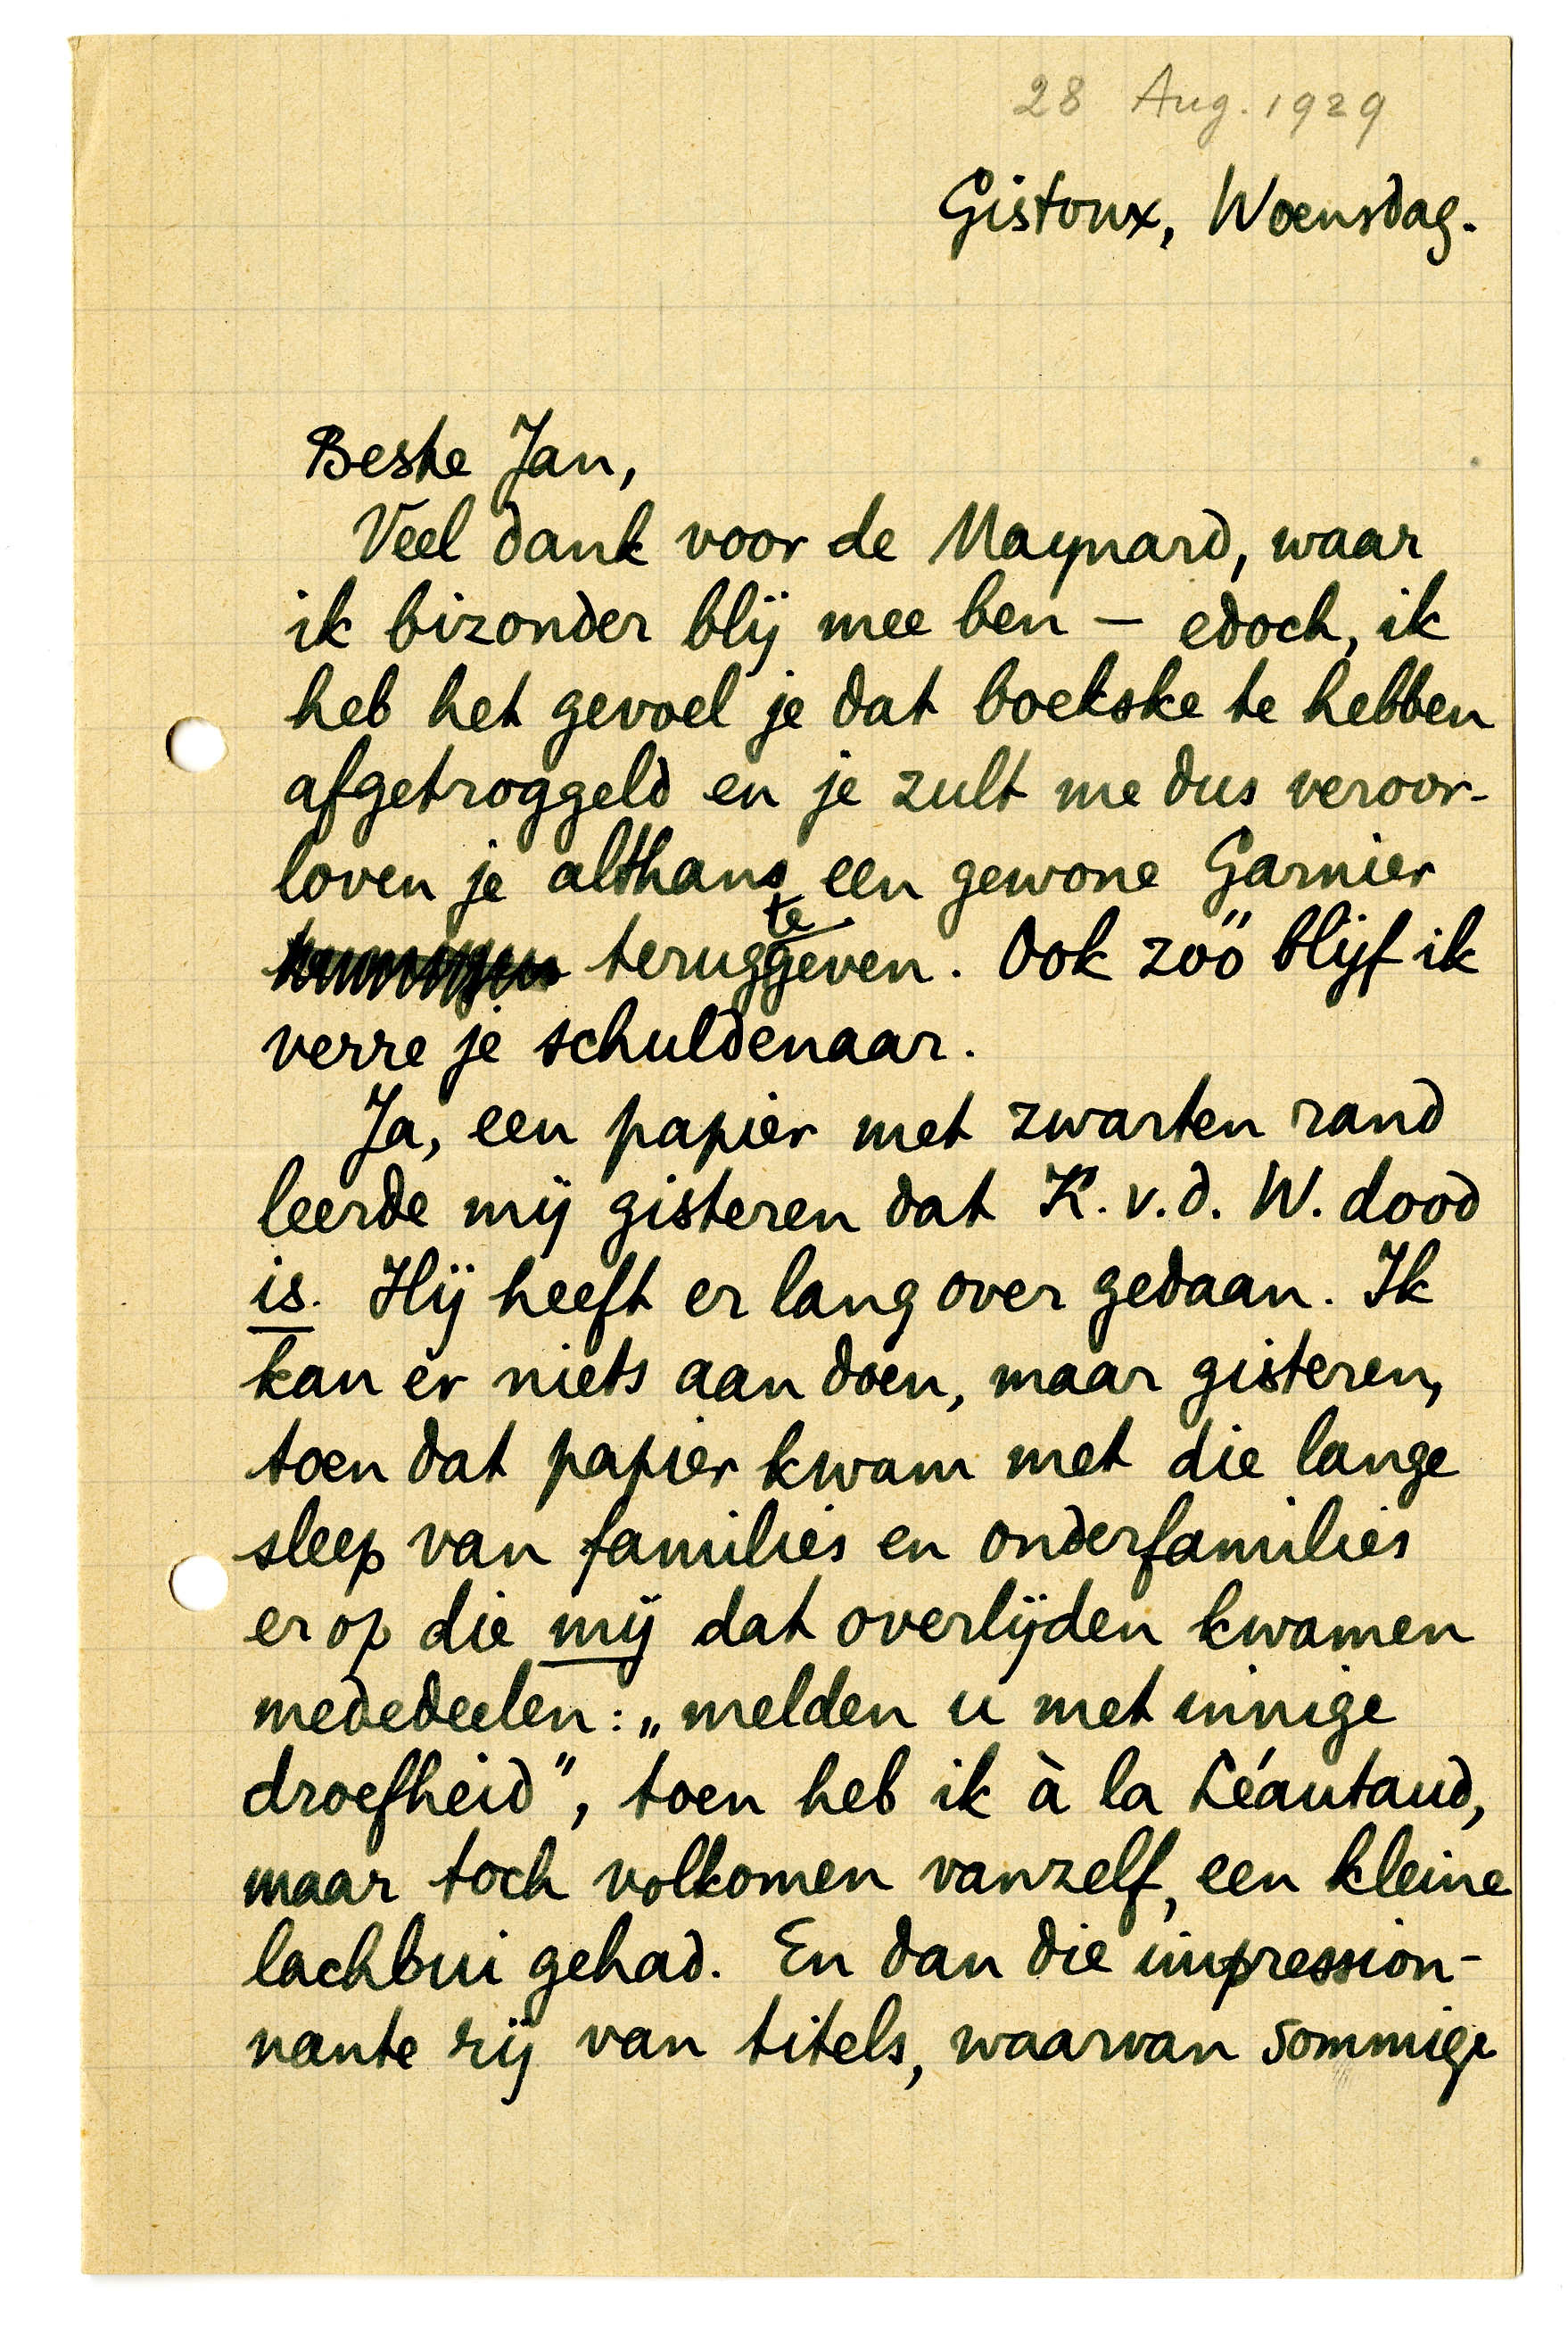 28 Aug. 1929
Gistoux, Woensdag.
Beste Jan,
Veel dank voor de Maynard, waar
ik bizonder blij mee ben – edoch, ik
heb het gevoel je dat boekske te hebben
afgetroggeld en je zult me dus veroor-
loven je althans een gewone Garnier
terug te geven. Ook zóó blijf ik
verre je schuldenaar.
Ja, een papier met zwarten rand
leerde mij gisteren dat K. v. d. W. dood
is. Hij heeft er lang over gedaan. Ik
kan er niets aan doen, maar gisteren,
toen dat papier kwam met die lange
sleep van families en onderfamilies
erop die mij dat overlijden kwamen
mededeelen: „melden u met innige
droefheid", toen heb ik à la Léautaud,
maar toch volkomen vanzelf, een kleine
lachbui gehad. En dan die impression-
nante rij van titels, waarvan sommige